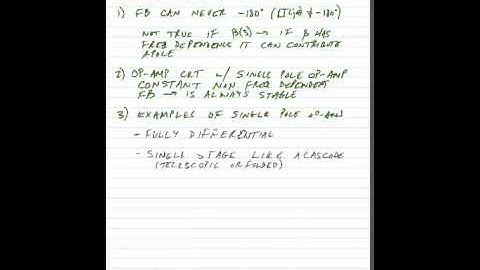 1) FB CAN NEVER -180° (∠T(jω) ≠ -180°)
NOT TRUE IF β(s) → IF β HAS
FREQ DEPENDENCE IT CAN CONTRIBUTE
A POLE
2) OP-AMP CKT W/ SINGLE POLE OP-AMP
CONSTANT NON FREQ DEPENDENT
FB → IS ALWAYS STABLE
3) EXAMPLES OF SINGLE POLE OP-AMPS
- FULLY DIFFERENTIAL
- SINGLE STAGE LIKE A CASCODE
(TELESCOPIC OR FOLDED)